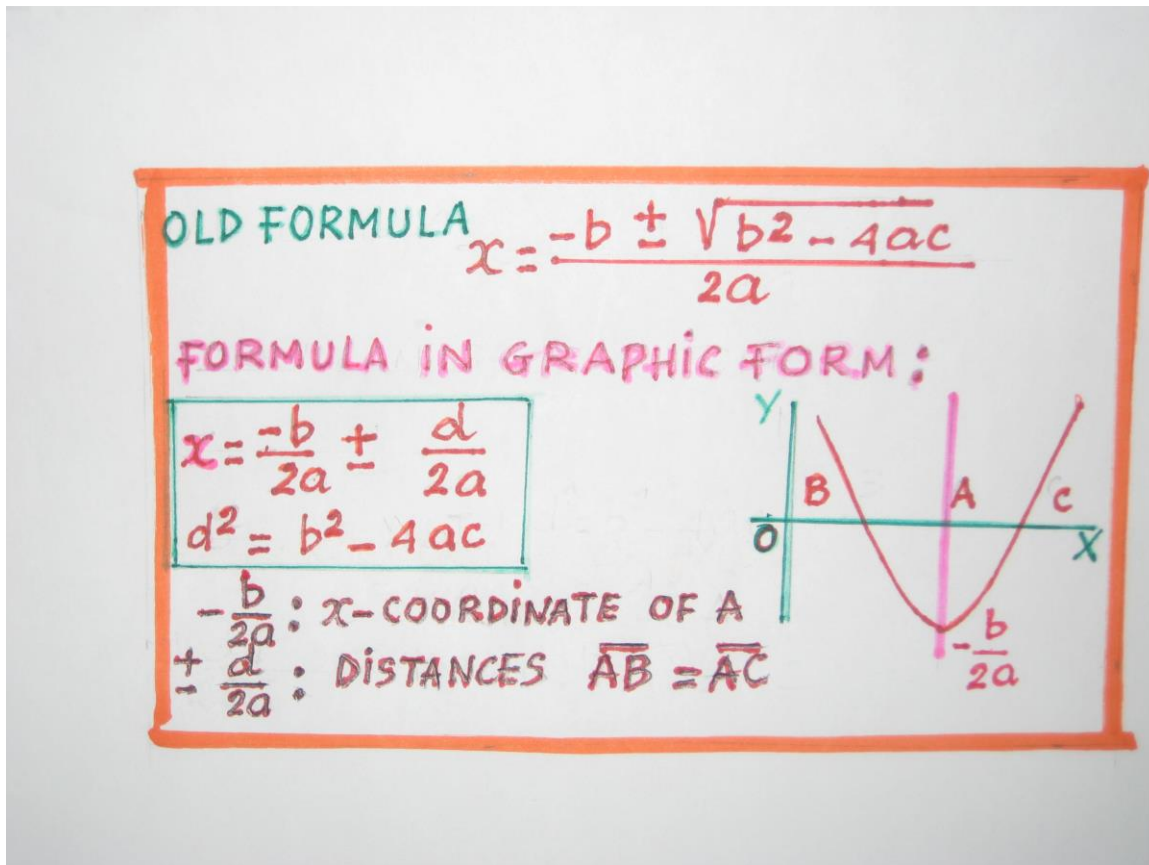 OLD FORMULA x = -b ± √b2 - 4ac / 2a
FORMULA IN GRAPHIC FORM:
x = -b/2a ± d/2a
d² = b² - 4ac
-b/2a : x-COORDINATE OF A
± d/2a : DISTANCES A̅B̅ = A̅C̅
Y
B A C
O X
-b/2a